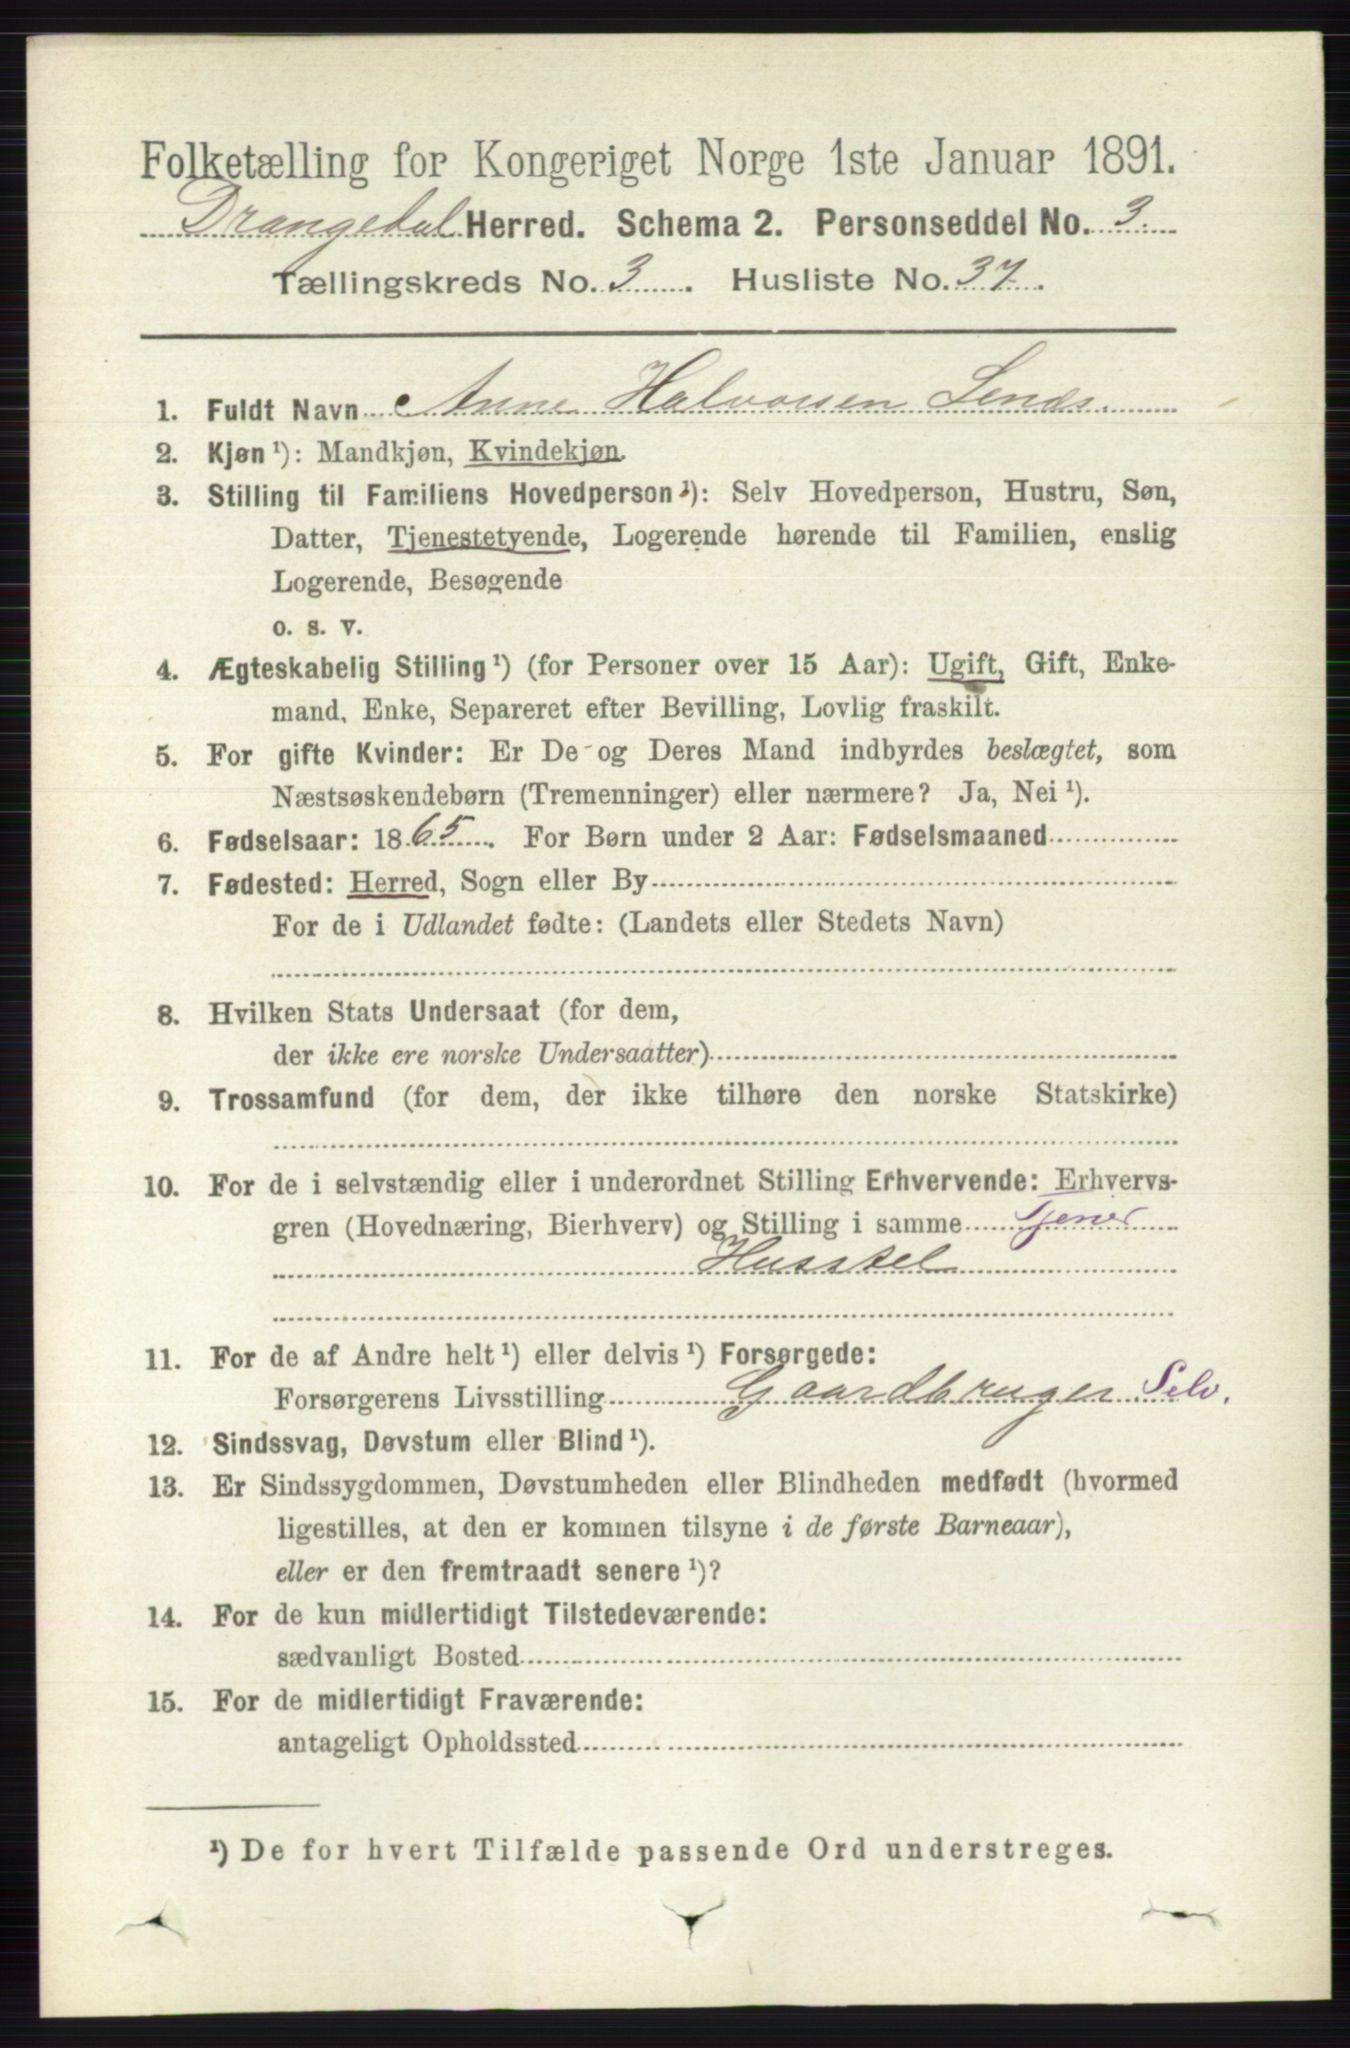 Folketælling for Kongeriget Norge 1ste Januar 1891.
Drangedal Herred. Schema 2. Personseddel No. 3.
Tællingskreds No. 3. Husliste No. 37.
1. Fuldt Navn Anne Halvorsen
2. Kjøn ¹): Mandkjøn, Kvindekjøn.
3. Stilling til Familiens Hovedperson ¹): Selv Hovedperson, Hustru, Søn,
Datter, Tjenestetyende, Logerende hørende til Familien, enslig
Logerende, Besøgende
o. s. v.
4. Ægteskabelig Stilling ¹) (for Personer over 15 Aar): Ugift, Gift, Enke-
mand, Enke, Separeret efter Bevilling, Lovlig fraskilt.
5. For gifte Kvinder: Er De og Deres Mand indbyrdes beslægtet, som
Næstsøskendebørn (Tremenninger) eller nærmere? Ja, Nei ¹).
6. Fødselsaar: 1865. For Børn under 2 Aar: Fødselsmaaned
7. Fødested: Herred, Sogn eller By
For de i Udlandet fødte: (Landets eller Stedets Navn)
8. Hvilken Stats Undersaat (for dem,
der ikke ere norske Undersaatter)
9. Trossamfund (for dem, der ikke tilhøre den norske Statskirke)
10. For de i selvstændig eller i underordnet Stilling Erhvervende: Erhvervs-
gren (Hovednæring, Bierhverv) og Stilling i samme Tjener
Husstel
11. For de af Andre helt ¹) eller delvis ¹) Forsørgede:
Forsørgerens Livsstilling Gaardbruger Selv.
12. Sindssvag, Døvstum eller Blind ¹).
13. Er Sindssygdommen, Døvstumheden eller Blindheden medfødt (hvormed
ligestilles, at den er kommen tilsyne i de første Barneaar),
eller er den fremtraadt senere ¹)?
14. For de kun midlertidigt Tilstedeværende:
sædvanligt Bosted
15. For de midlertidigt Fraværende:
antageligt Opholdssted
¹) De for hvert Tilfælde passende Ord understreges.